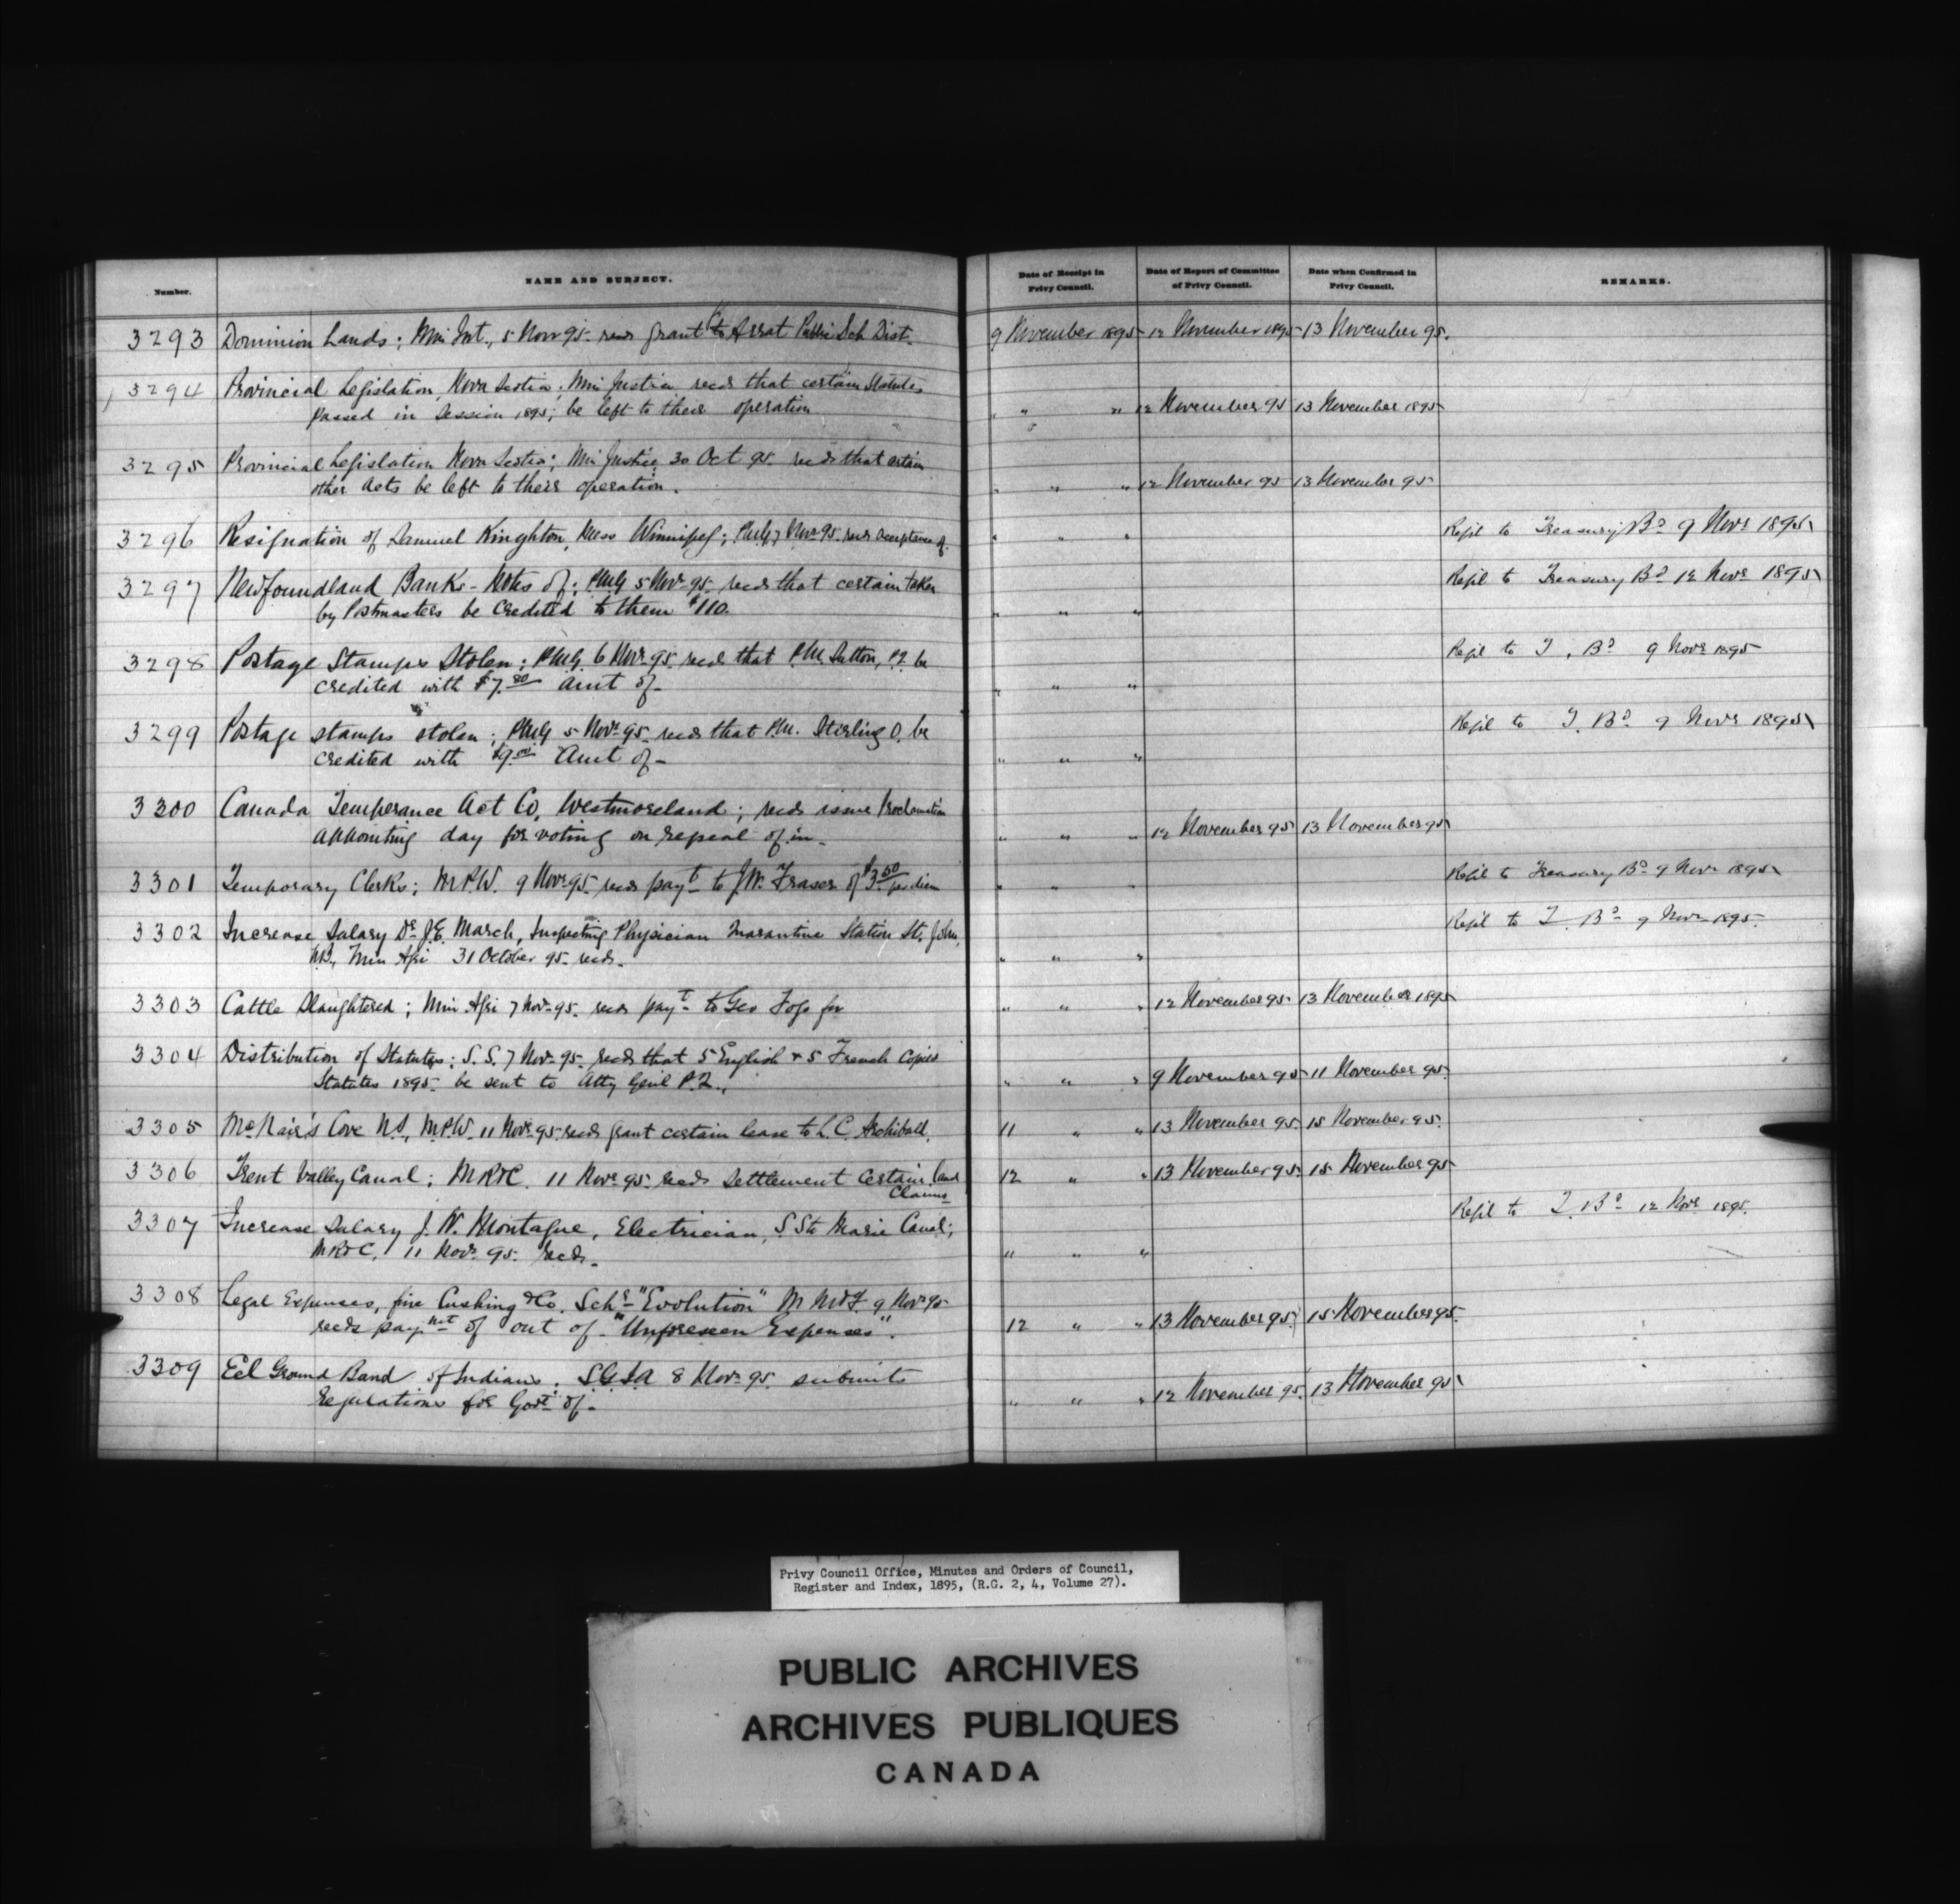 Number.
NAME AND SUBJECT.
Date of Receipt in Privy Council.
Date of Report of Committee of Privy Council.
Date when Confirmed in Privy Council.
REMARKS.
3293 Dominion Lands; Min Int., 5 Nov 95 recds grant to Arrat Public Sch Dist. 9 November 1895 12 November 1895 13 November 95.
3294 Provincial Legislation, Nova Scotia; Min Justice recds that certain Statutes
passed in Session 1895; be left to their operation " " " 12 November 95 13 November 1895
3295 Provincial Legislation Nova Scotia; Min Justice 30 Oct 95. recds that certain
other Acts be left to their operation. " " " 12 November 95 13 November 95
3296 Resignation of Samuel Kinghton, Mess Winnipeg; PMG 7 Nov 95 recds acceptance of. " " " Refd to Treasury Bd 9 Novr 1895
3297 Newfoundland Banks - Notes of; PMG 5 Novr 95 recds that certain taken Refd to Treasury Bd 12 Novr 1895
by Postmasters be credited to them $110. " " "
3298 Postage Stamps Stolen; PMG. 6 Novr 95 recds that P.M. Sutton, P2 be Refd to T. Bd 9 Novr 1895
credited with $7.80 amt of - " " "
3299 Postage stamps stolen; PMG 5 Novr 95 recds that P.M. Stirling O. be Refd to T. Bd 9 Novr 1895
credited with $9.00 Amt of - " " "
3300 Canada Temperance Act Co, Westmoreland; recds issue Proclamation
appointing day for voting on repeal of in - " " " 12 November 95 13 November 95
3301 Temporary Clerks; M.P.W. 9 Novr 95 recds payt to J.W. Fraser of $3.50 per diem " " " Refd to Treasury Bd 9 Novr 1895
3302 Increase Salary Dr J.E. March, Inspecting Physician Quarantine Station St. John, Refd to T. Bd 9 Novr 1895.
N.B., Min Agri 31 October 95 recds. " " "
3303 Cattle Slaughtered; Min Agri 7 Novr 95. recds payt to Geo for " " " 12 November 95 13 November 1895
3304 Distribution of Statutes; S.S. 7 Novr 95 recds that 5 English & 5 French Copies
Statutes 1895 be sent to Atty Genl P.Q., " " " 9 November 95 11 November 95.
3305 McNair's Cove N.S., M.P.W. 11 Novr 95 recds grant certain lease to L.C. Archibald. 11 " " 13 November 95. 15 November 95.
3306 Trent Valley Canal; MR&C. 11 Novr 95 recds Settlement Certain land
Claims 12 " " 13 November 95. 15 November 95
3307 Increase Salary J.N. Montague, Electrician, S. Ste Marie Canal; Refd to T. Bd 12 Novr 1895.
MR&C, 11 Novr 95. recds. " " "
3308 Legal Expenses, fine Cushing & Co. Schr "Evolution" M M&F 9 Novr 95
recds paymet of out of "Unforeseen Expenses". 12 " " 13 November 95 15 November 95.
3309 Eel Ground Band of Indians; SGIA 8 Novr 95. submits
Regulations for Govt of - " " " 12 November 95. 13 November 95
Privy Council Office, Minutes and Orders of Council,
Register and Index, 1895, (R.G. 2, 4, Volume 27).
PUBLIC ARCHIVES
ARCHIVES PUBLIQUES
CANADA